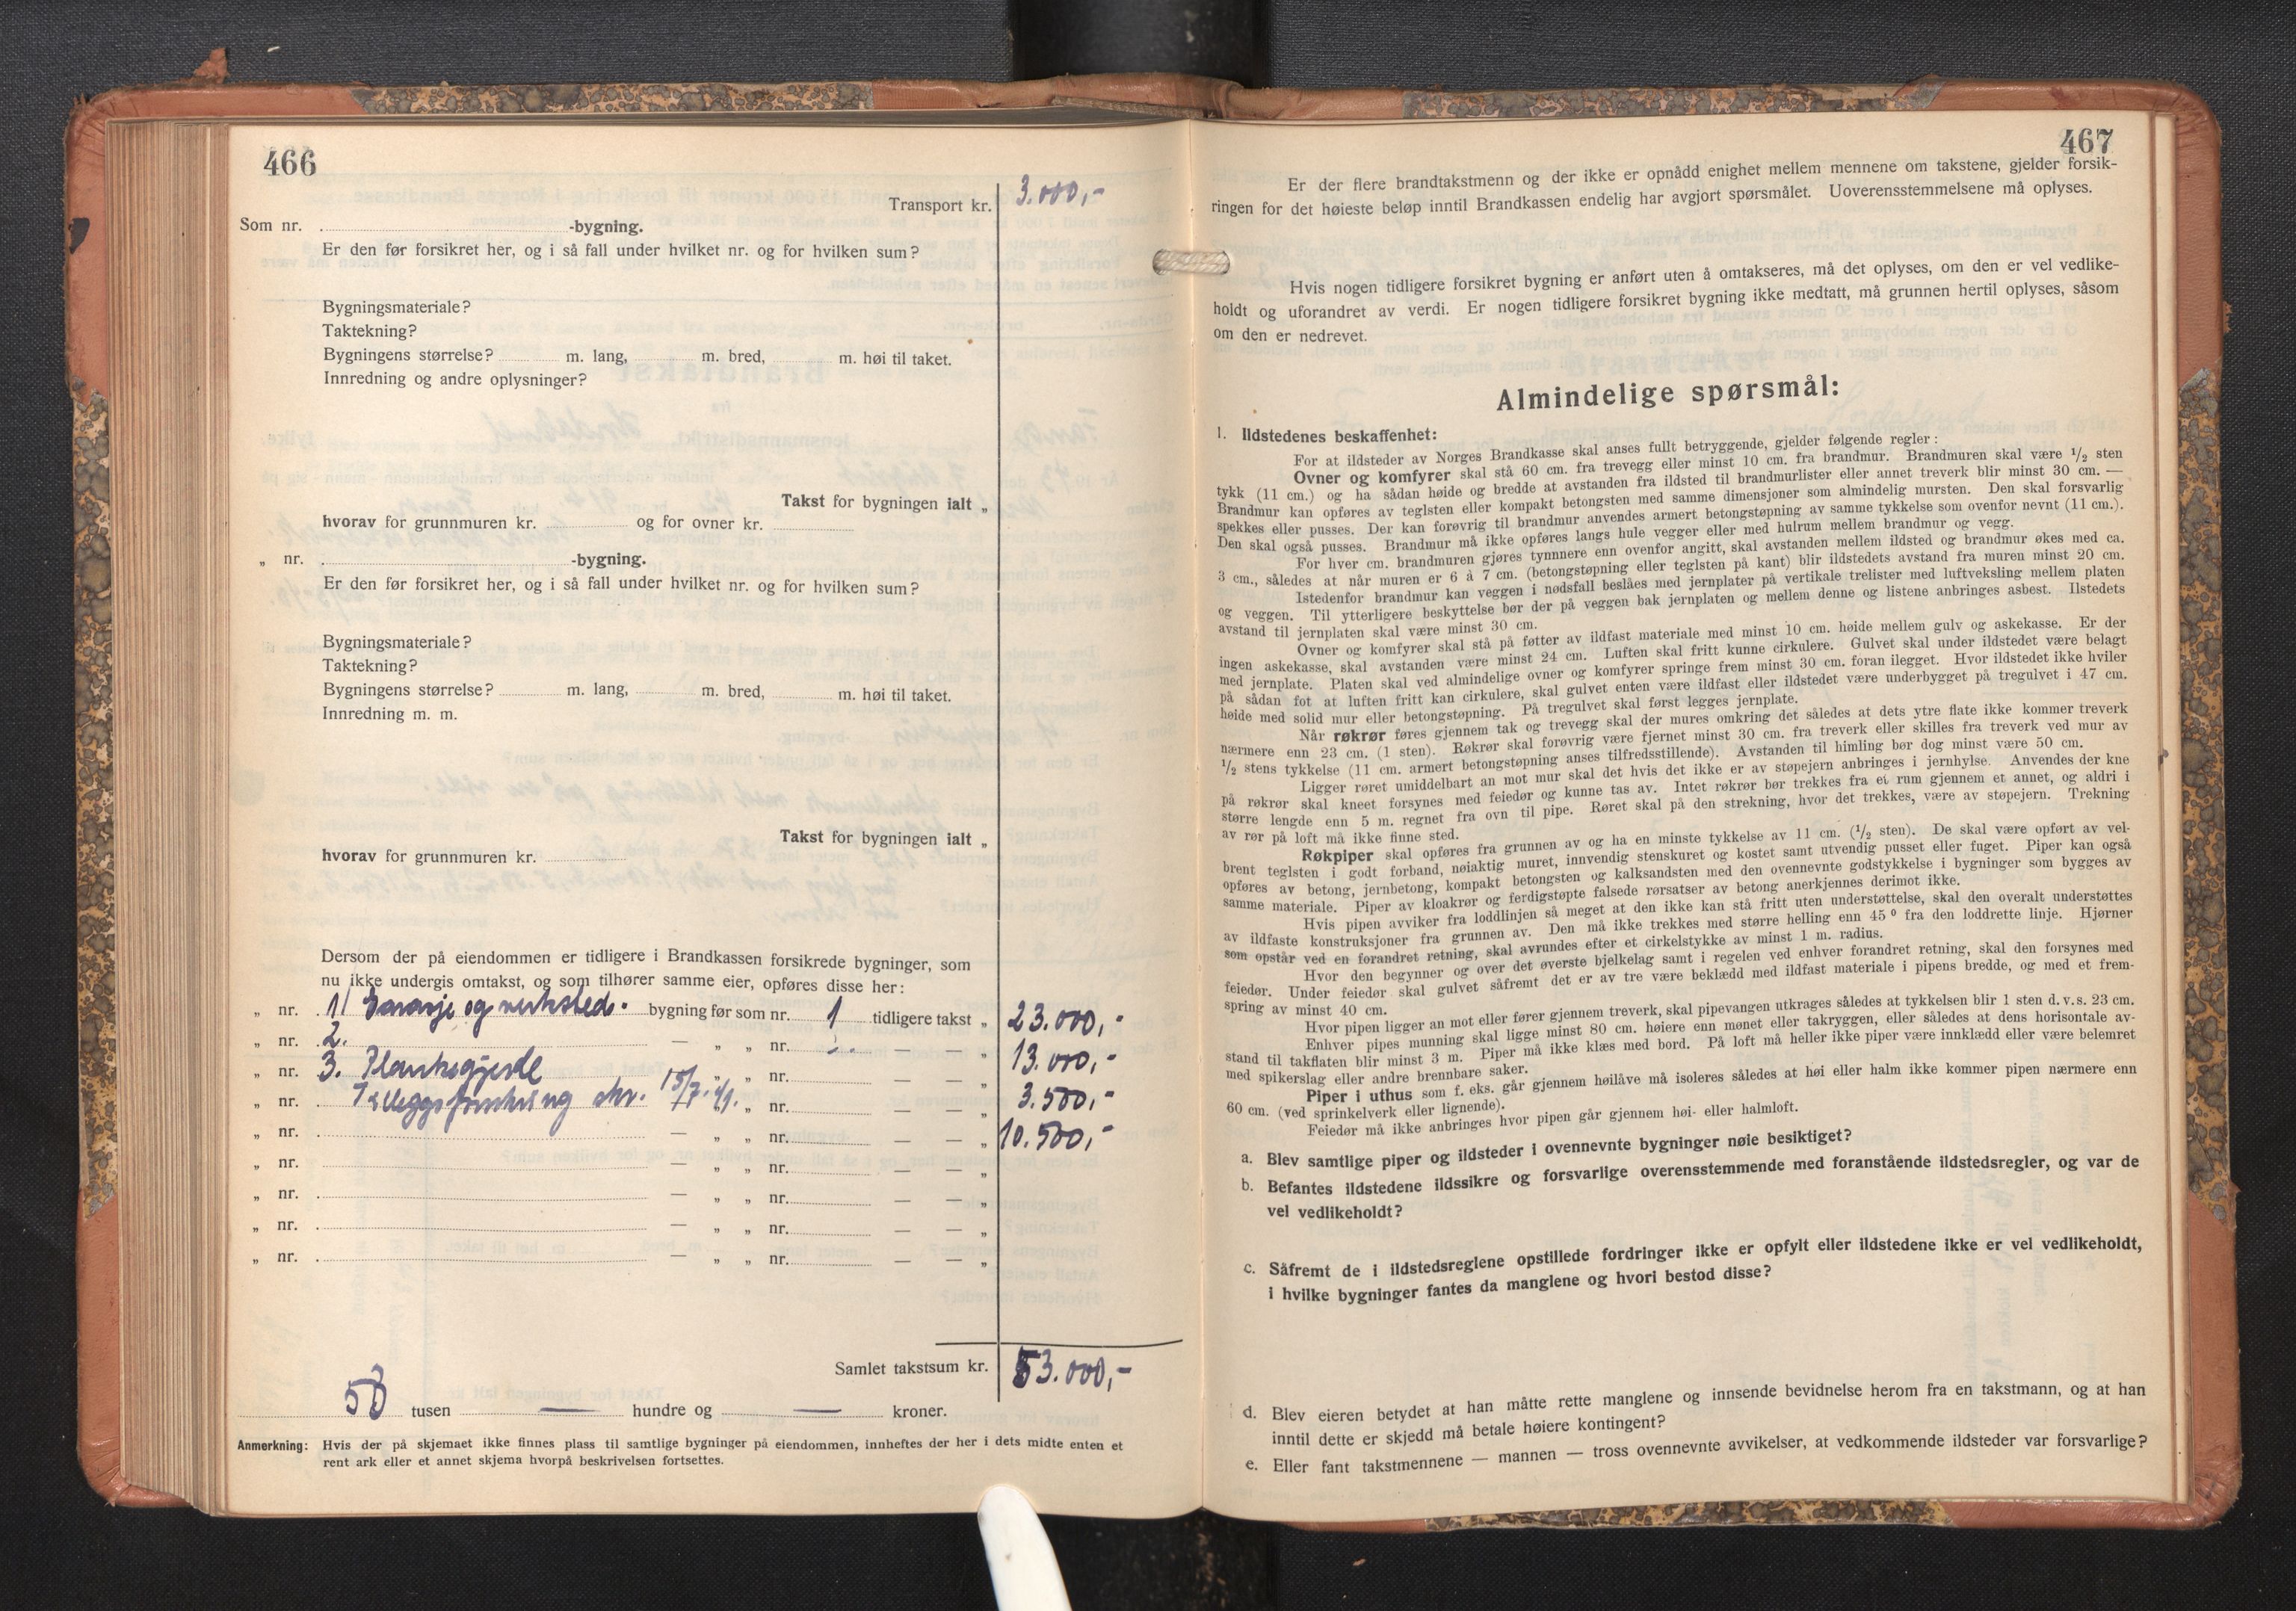 466
Transport kr. 3.000,-
Som nr. -bygning.
Er den før forsikret her, og i så fall under hvilket nr. og for hvilken sum?
Bygningsmateriale?
Taktekning?
Bygningens størrelse? m. lang, m. bred, m. høi til taket.
Innredning og andre oplysninger?
Takst for bygningen ialt „
hvorav for grunnmuren kr. og for ovner kr.
„ nr. -bygning.
Er den før forsikret her, og i så fall under hvilket nr. og for hvilken sum?
Bygningsmateriale?
Taktekning?
Bygningens størrelse? m. lang, m. bred, m. høi til taket.
Innredning m. m.
Takst for bygningen ialt „
hvorav for grunnmuren kr.
Dersom der på eiendommen er tidligere i Brandkassen forsikrede bygninger, som
nu ikke undergis omtakst, og som tilhører samme eier, opføres disse her:
„ nr. 1/ Garasje og verksted. bygning før som nr. 1 tidligere takst „ 23.000,-
„ nr. 2. — „ „ nr. 2. — — „ 13.000,-
„ nr. 3. Plankegjerde „ nr. — — „ 3.500,-
„ nr. Tilleggsforsikring skr. 15/7.41. „ nr. — — „ 10.500,-
„ nr. — „ „ nr. — — „
„ nr. — „ „ nr. — — „
„ nr. — „ „ nr. — — „
„ nr. — „ „ nr. — — „
„ nr. — „ „ nr. — — „
Samlet takstsum kr. 53.000,-
53 tusen — hundre og — kroner.
Anmerkning: Hvis der på skjemaet ikke finnes plass til samtlige bygninger på eiendommen, innheftes der her i dets midte enten et
rent ark eller et annet skjema hvorpå beskrivelsen fortsettes.
467
Er der flere brandtakstmenn og der ikke er opnådd enighet mellem mennene om takstene, gjelder forsik-
ringen for det høieste beløp inntil Brandkassen endelig har avgjort spørsmålet. Uoverensstemmelsene må oplyses.
Hvis nogen tidligere forsikret bygning er anført uten å omtakseres, må det oplyses, om den er vel vedlike-
holdt og uforandret av verdi. Er nogen tidligere forsikret bygning ikke medtatt, må grunnen hertil oplyses, såsom
om den er nedrevet.
Almindelige spørsmål:
1. Ildstedenes beskaffenhet:
For at ildsteder av Norges Brandkasse skal anses fullt betryggende, gjelder følgende regler:
Ovner og komfyrer skal stå 60 cm. fra trevegg eller minst 10 cm. fra brandmur. Brandmuren skal være 1/2 sten
tykk (11 cm.) og ha sådan høide og bredde at avstanden fra ildsted til brandmurlister eller annet treverk blir minst 30 cm. —
Brandmur kan opføres av teglsten eller kompakt betongsten med samme dimensjoner som almindelig mursten. Den skal forsvarlig
spekkes eller pusses. Der kan forøvrig til brandmur anvendes armert betongstøpning av samme tykkelse som ovenfor nevnt (11 cm.).
Den skal også pusses. Brandmur må ikke opføres langs hule vegger eller med hulrum mellem brandmur og vegg.
For hver cm. brandmuren gjøres tynnnere enn ovenfor angitt, skal avstanden mellem ildsted og brandmur økes med ca.
3 cm., således at når muren er 6 à 7 cm. (betongstøpning eller teglsten på kant) blir ildstedets avstand fra muren minst 20 cm.
Istedenfor brandmur kan veggen i nødsfall beslåes med jernplater på vertikale trelister med luftveksling mellem platen
og veggen. Til ytterligere beskyttelse bør der på veggen bak jernplaten og mellem denne og listene anbringes asbest. Ilstedets
avstand til jernplaten skal være minst 30 cm.
Ovner og komfyrer skal stå på føtter av ildfast materiale med minst 10 cm. høide mellem gulv og askekasse. Er der
ingen askekasse, skal avstanden være minst 24 cm. Luften skal fritt kunne cirkulere. Gulvet skal under ildstedet være belagt
med jernplate. Platen skal ved almindelige ovner og komfyrer springe frem minst 30 cm. foran ilegget. Hvor ildstedet ikke hviler
på sådan fot at luften fritt kan cirkulere, skal gulvet enten være ildfast eller ildstedet være underbygget på tregulvet i 47 cm.
høide med solid mur eller betongstøpning. På tregulvet skal først legges jernplate.
Når røkrør føres gjennem tak og trevegg skal der mures omkring det således at dets ytre flate ikke kommer treverk
nærmere enn 23 cm. (1 sten). Røkrør skal forøvrig være fjernet minst 30 cm. fra treverk eller skilles fra treverk ved mur av
1/2 stens tykkelse (11 cm. armert betongstøpning anses tilfredsstillende). Avstanden til himling bør dog minst være 50 cm.
Ligger røret umiddelbart an mot mur skal det hvis det ikke er av støpejern anbringes i jernhylse. Anvendes der kne
på røkrør skal kneet forsynes med feiedør og kunne tas av. Intet røkrør bør trekkes fra et rum gjennem et annet, og aldri i
større lengde enn 5 m. regnet fra ovn til pipe. Røret skal på den strekning, hvor det trekkes, være av støpejern. Trekning
av rør på loft må ikke finne sted.
Røkpiper skal opføres fra grunnen av og ha en minste tykkelse av 11 cm. (1/2 sten). De skal være opført av vel-
brent teglsten i godt forband, nøiaktig muret, innvendig stenskuret og kostet samt utvendig pusset eller fuget. Piper kan også
opføres av betong, jernbetong, kompakt betongsten og kalksandsten med den ovennevnte godstykkelse i bygninger som bygges av
samme materiale. Piper av kloakrør og ferdigstøpte falsede rørsatser av betong anerkjennes derimot ikke.
Hvis pipen avviker fra loddlinjen så meget at den ikke kan stå fritt uten understøttelse, skal den overalt understøttes
av ildfaste konstruksjoner fra grunnen av. Den må ikke trekkes med større helling enn 45 ° fra den loddrette linje. Hjørner
som opstår ved en forandret retning, skal avrundes efter et cirkelstykke av minst 1 m. radius.
Hvor den begynner og over det øverste bjelkelag samt i regelen ved enhver forandret retning, skal den forsynes med
feiedør. Under feiedør skal gulvet såfremt det er av tre være beklædd med ildfast materiale i pipens bredde, og med et frem-
spring av minst 40 cm.
Hvor pipen ligger an mot eller fører gjennem treverk, skal pipevangen utkrages således at tykkelsen blir 1 sten d. v. s. 23 cm.
Enhver pipes munning skal ligge minst 80 cm. høiere enn mønet eller takryggen, eller således at dens horisontale av-
stand til takflaten blir minst 3 m. Piper må ikke klæs med bord. På loft må heller ikke piper være innklædd eller være belemret
med spikerslag eller andre brennbare saker.
Piper i uthus som f. eks. går gjennem høilåve må isoleres således at høi eller halm ikke kommer pipen nærmere enn
60 cm. (ved sprinkelverk eller lignende).
Feiedør må ikke anbringes hvor pipen går gjennem høi- eller halmloft.
a. Blev samtlige piper og ildsteder i ovennevnte bygninger nøie besiktiget?
b. Befantes ildstedene ildssikre og forsvarlige overensstemmende med foranstående ildstedsregler, og var de
vel vedlikeholdt?
c. Såfremt de i ildstedsreglene opstillede fordringer ikke er opfylt eller ildstedene ikke er vel vedlikeholdt,
i hvilke bygninger fantes da manglene og hvori bestod disse?
d. Blev eieren betydet at han måtte rette manglene og innsende bevidnelse herom fra en takstmann, og at han
inntil dette er skjedd må betale høiere kontingent?
e. Eller fant takstmennene — mannen — tross ovennevnte avvikelser, at vedkommende ildsteder var forsvarlige?